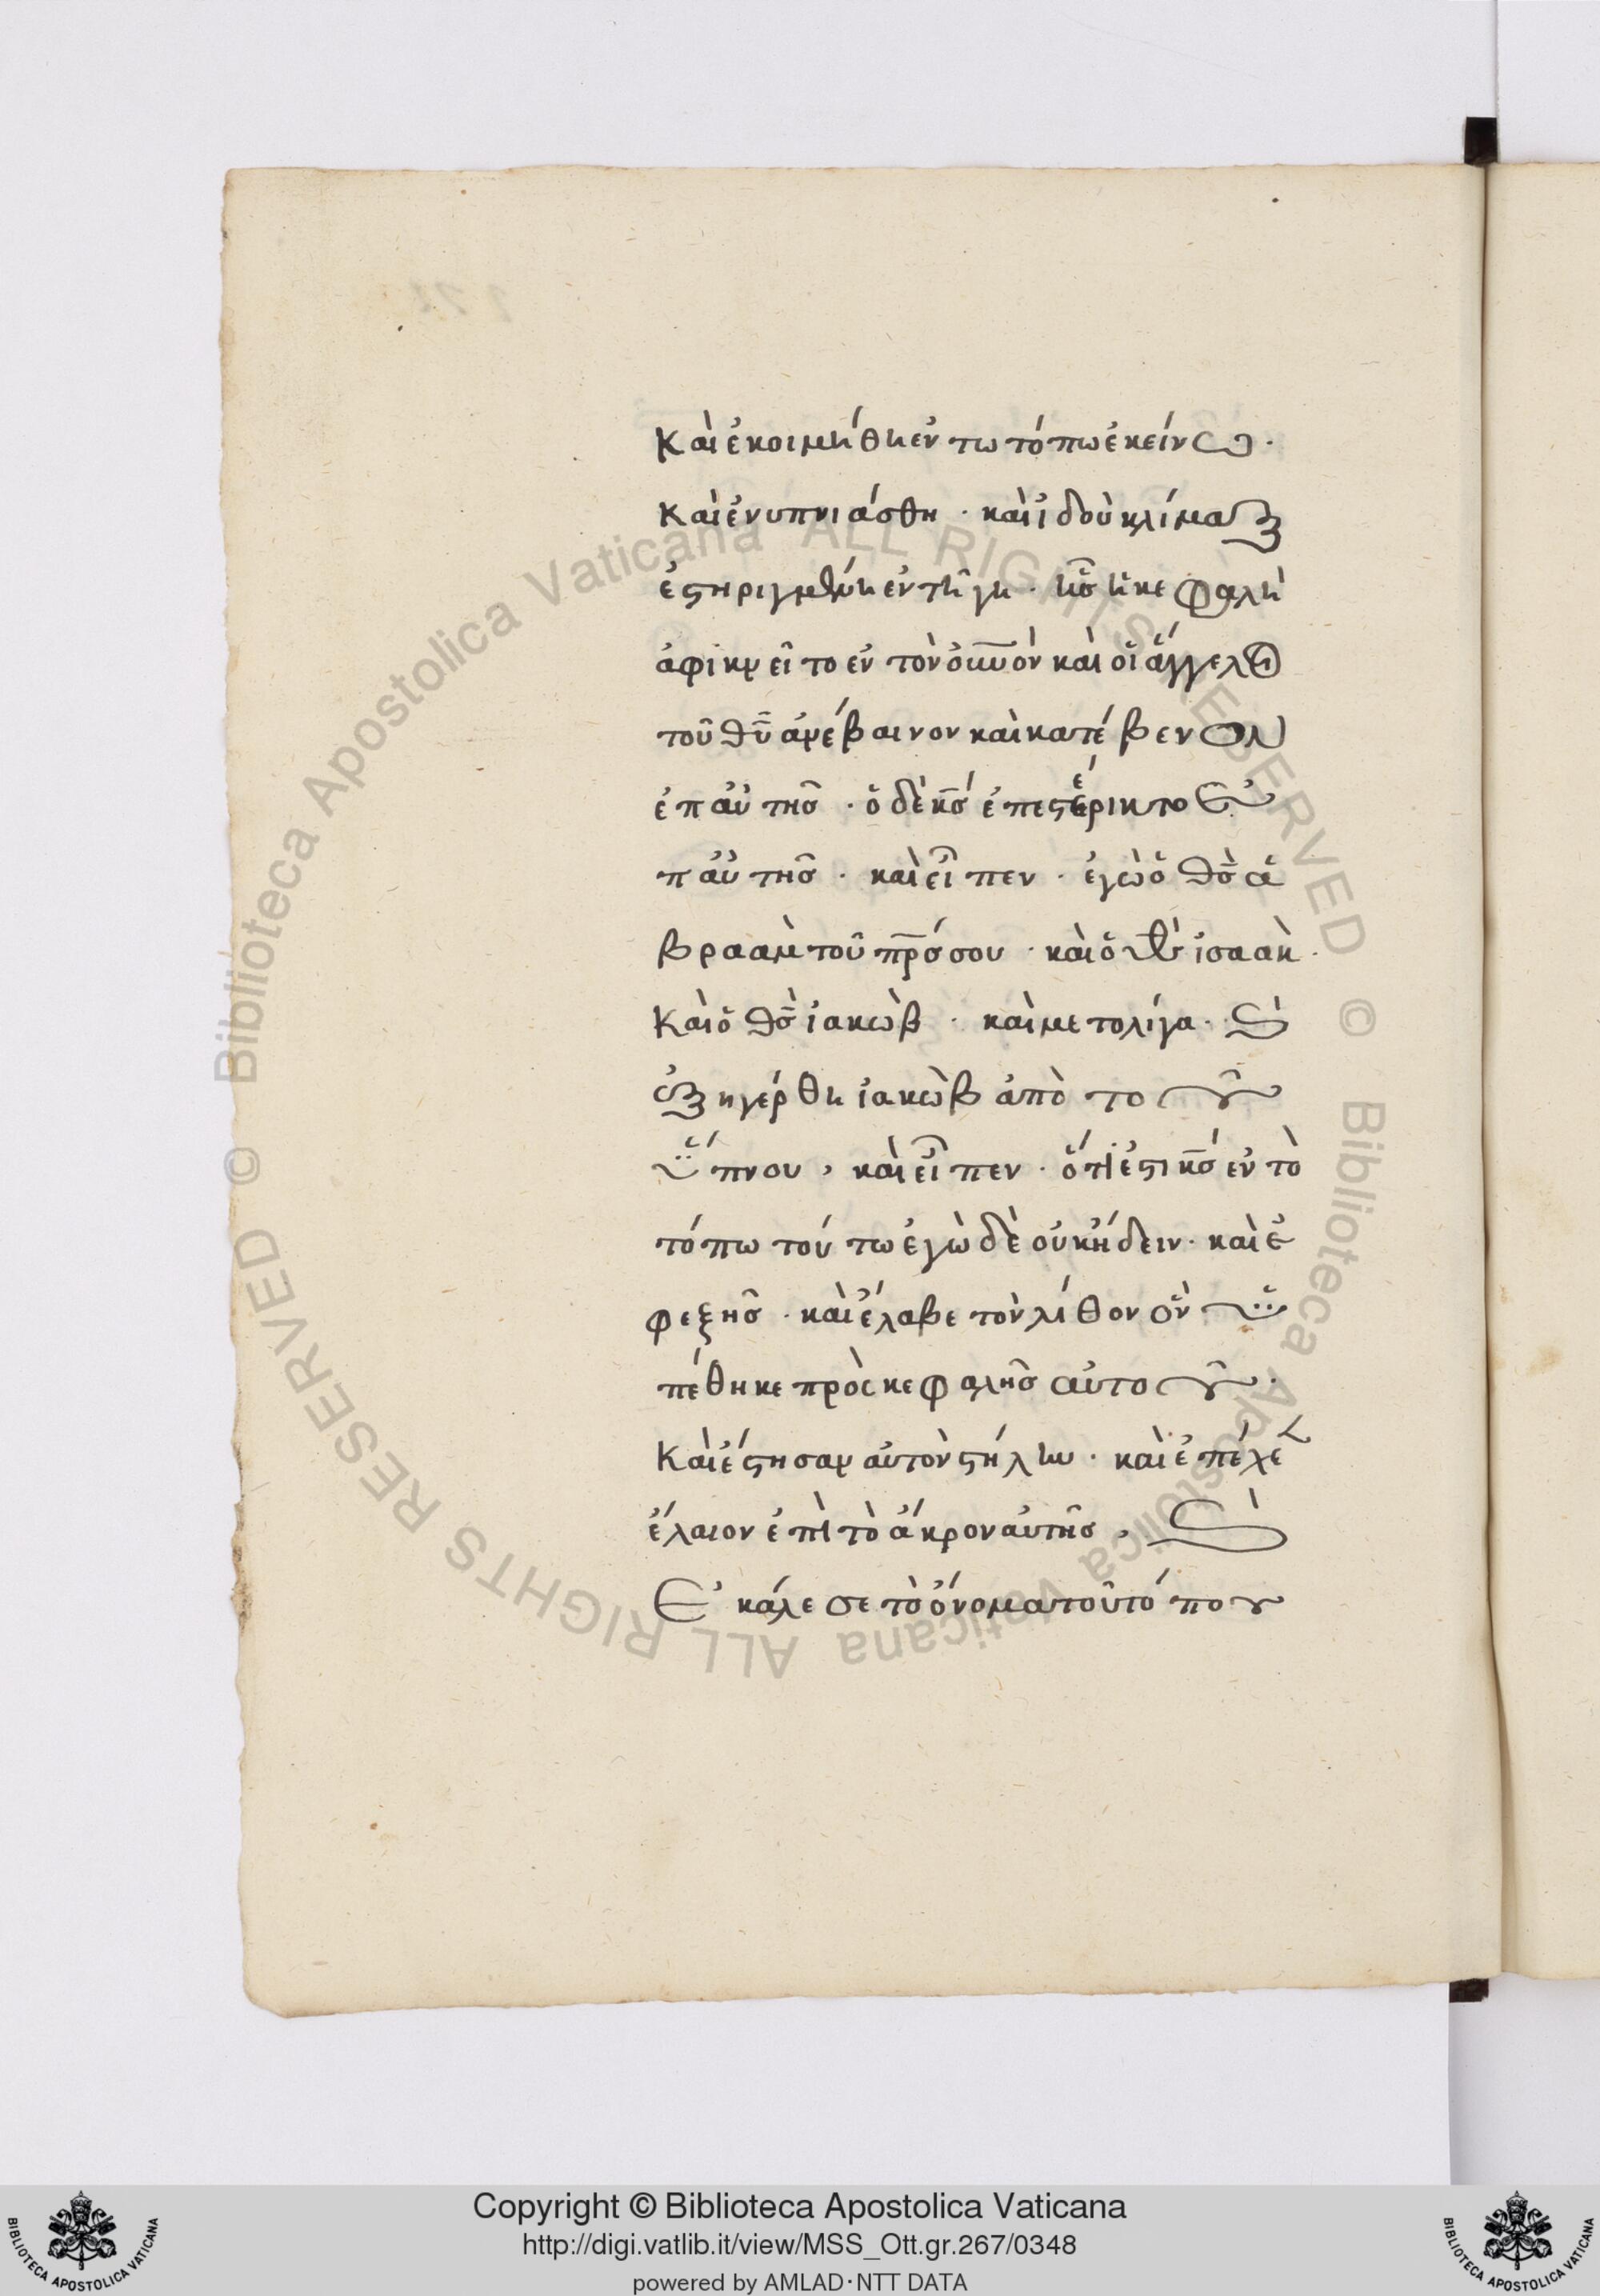 Καὶ ἐκοιμήθη ἐν τω τόπω ἐκείνω ·
καὶ ἐνυπνιάσθη · καὶ ἰδοὺ κλίμαξ
ἐστηριγμένη ἐν τῆ γη · ἧς ἡ κεφαλὴ
ἀφικνεῖτο ἐν τὸν οὐνὸν καὶ οἱ ἄγγελοι
τοῦ θῦ ἀνέβαινον καὶ κατέβενον
ἐπ αὐτῆσ · ὁ δὲ κσ ἐπεστήρικτο ἐ
π αὐτῆσ · καὶ εἶπεν · ἐγὼ ὁ θσ ἀ
βραὰμ τοῦ πρσ σου · καὶ ὁ θσ ἰσαὰκ ·
Καὶ ὁ θσ ἰακὼβ · καὶ μετολίγα · καὶ
ἐξηγέρθη ἰακὼβ ἀπὸ του
ὕπνου , καὶ εἶπεν · ὅτι ἐστι κσ ἐν τὸ
τόπω τούτω ἐγὼ δὲ οὐκ ἤδειν · καὶ ἐ
φεξῆσ · καὶ ἔλαβε τὸν λίθον ὃν ὑ
πέθηκε πρὸς κεφαλῆσ αὐτοῦ ·
Καὶ ἔστησαν αὐτὸν στήλην · καὶ ἐπέχεε
ἔλαιον ἐπὶ τὸ ἄκρον αὐτῆσ , καὶ
Ἐκάλεσε τὸ ὄνομα τοῦ τόπου
Copyright © Biblioteca Apostolica Vaticana
http://digi.vatlib.it/view/MSS_Ott.gr.267/0348
powered by AMLAD·NTT DATA